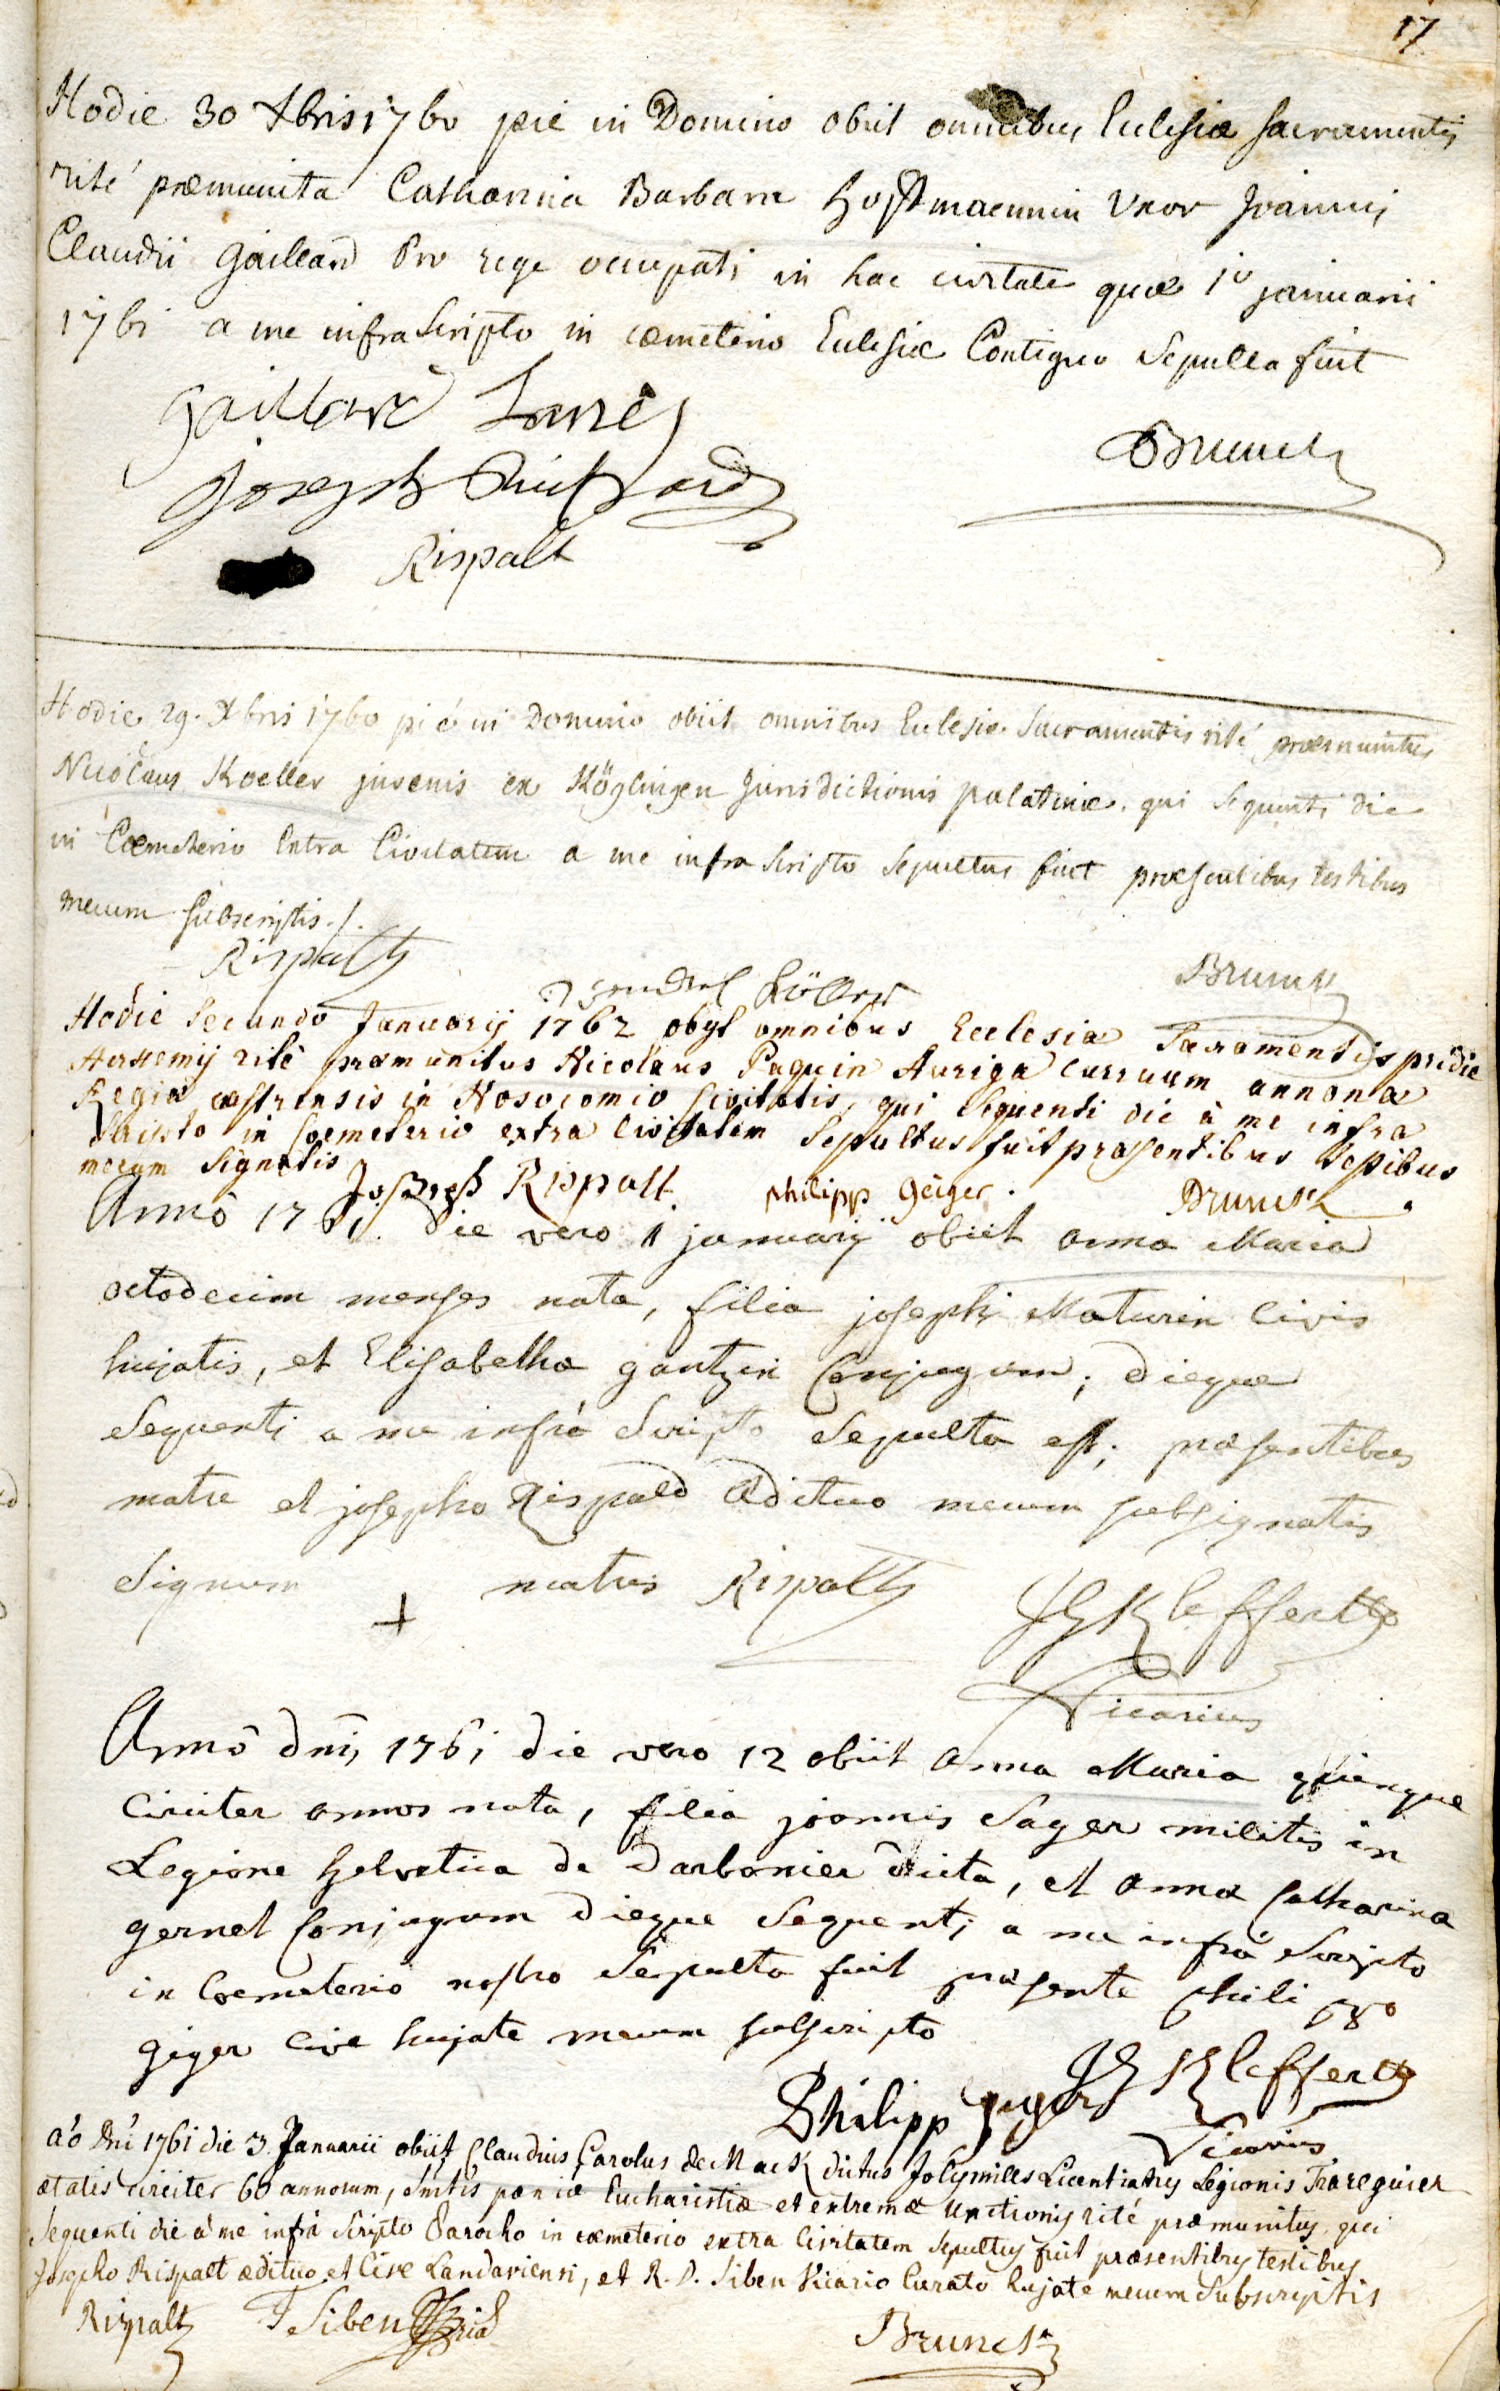 17
Hodie 30 Xbris 1760 pie in Domino obiit omnibus Eclesiæ sacramentis
rité præmunita Catharina Barbara Hoffmaennin Uxor Joannis
Claudii Gaillard Pro rege occupati in hac civitate quæ 1º januarii
1761 a me infra Scripto in cæmeterio Eclesiæ Contiguo Sepulta fuit
Gaillard
Joseph
Brunck
Rispalt
Hodie 29. Xbris 1760 pié in Domino obiit omnibus Eclesiæ Sacramentis rité præmunitus
Nicolaus Koeller juvenis ex Köglingen Jurisdictionis palatinæ. qui sequenti die
in Cæmeterio Extra Civitatem a me infra Scripto Sepultus fuit præsentibus testibus
mecum subscriptis ./.
Rispalt
Köller
Brunck
Hodie Secundo Januarij 1762 obyt omnibus Ecclesia Sacramentis pridie
rité præmunitus Nicolaus Paquin Auriga curruum annona
Regiæ castrensis in Nosocomio Civitatis, qui sequenti die à me infra
Scripto in Coemeterio extra Civitatem Sepultus fuit præsentibus testibus
mecum Signatis
Joseph Rispalt
philipp Geiger.
Brunck
Anno 1761 die vero 1 januarij obiit anna Maria
octodecim menses nata, filia josephi Maturin Civis
hujatis, et Elisabetha gantzin Conjugum; dieque
Sequenti a me infrà Scripto Sepulta est; præsentibus
matre et josepho Rispald Ædituo mecum subsignatis
Signum + matris
Rispalt
JG Kleffertz
Vicarius
Anno dni 1761 die vero 12 obiit Anna Maria quinque
Circiter annos nata, filia joannis Sager militis in
Legione helvetica de Darbonier dicta, et Anna Catharina
gernet Conjugum dieque Sequenti a me infrà Scripto
in Coemeterio nostro Sepulta fuit præsente philippo
Giger cive hujate mecum subscripto
Philipp
JG Kleffertz
Vicarius
aº Dni 1761 die 3. Januarii obiit Claudius Carolus de Mack dictus Joly miles Licentiatus Legionis
ætatis circiter 60 annorum, Smtis pæniæ Eucharistiæ et extremæ Unctionis rité præmunitus, qui
Sequenti die à me infrà Scripto Parocho in cæmeterio extra Civitatem sepultus fuit præsentibus testibus
Josepho Rispalt ædituo et Cive Landaviensi, et R. D. Siben Vicario Curato hujate mecum Subscriptis
Rispalt
Siben
Brunck